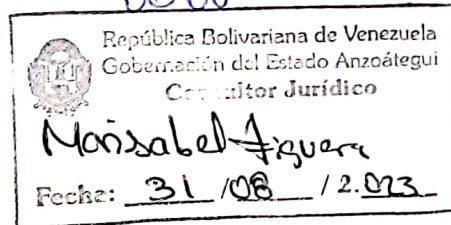 República Bolivariana de Venezuela
Gobernación del Estado Anzoátegui
Consultor Jurídico
Marisabel Figuera
Fecha: 31 /08 / 2.023